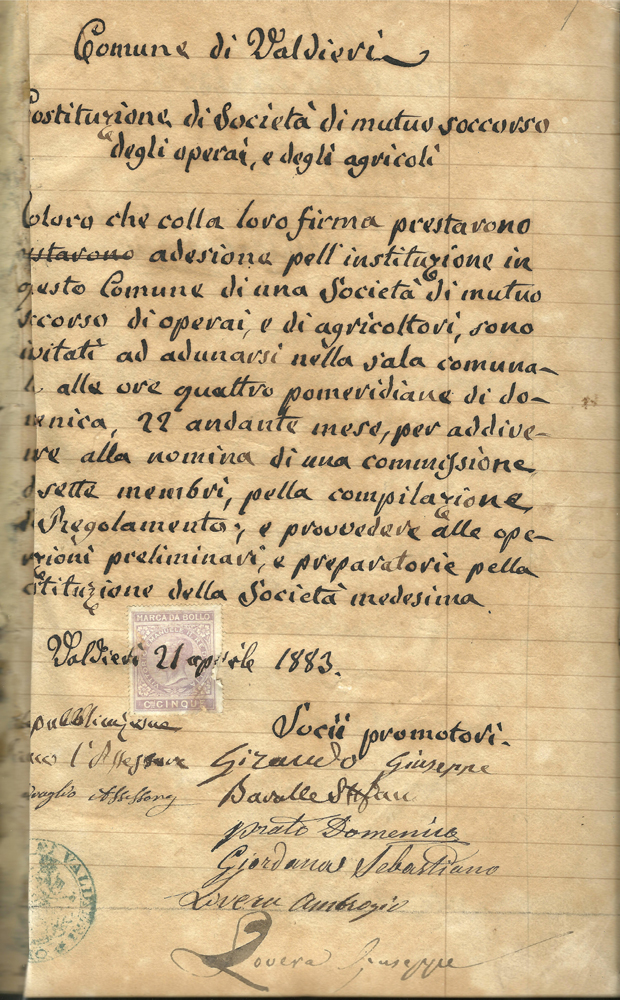 Comune di Valdieri
ostituzione di Società di mutuo soccorso
degli operai, e degli agricoli
oloro che colla loro firma prestarono
estarono adesione pell'instituzione in
questo Comune di una Società di mutuo
occorso di operai, e di agricoltori, sono
invitati ad adunarsi nella sala comuna-
le alle ore quattro pomeridiane di do-
menica, 22 andante mese, per addive-
nire alla nomina di una commissione
di sette membri, pella compilazione
di Regolamento; e provvedere alle ope-
razioni preliminari, e preparatorie pella
stituzione della Società medesima.
MARCA DA BOLLO
Valdieri 21 aprile 1883.
C. CINQUE
Socii promotori.
l'Assessore Giraudo Giuseppe
Assessore Bavalle Stefan
Prato Domenico
Giordana Sebastiano
Livera Ambrogio
Lovera Giuseppe